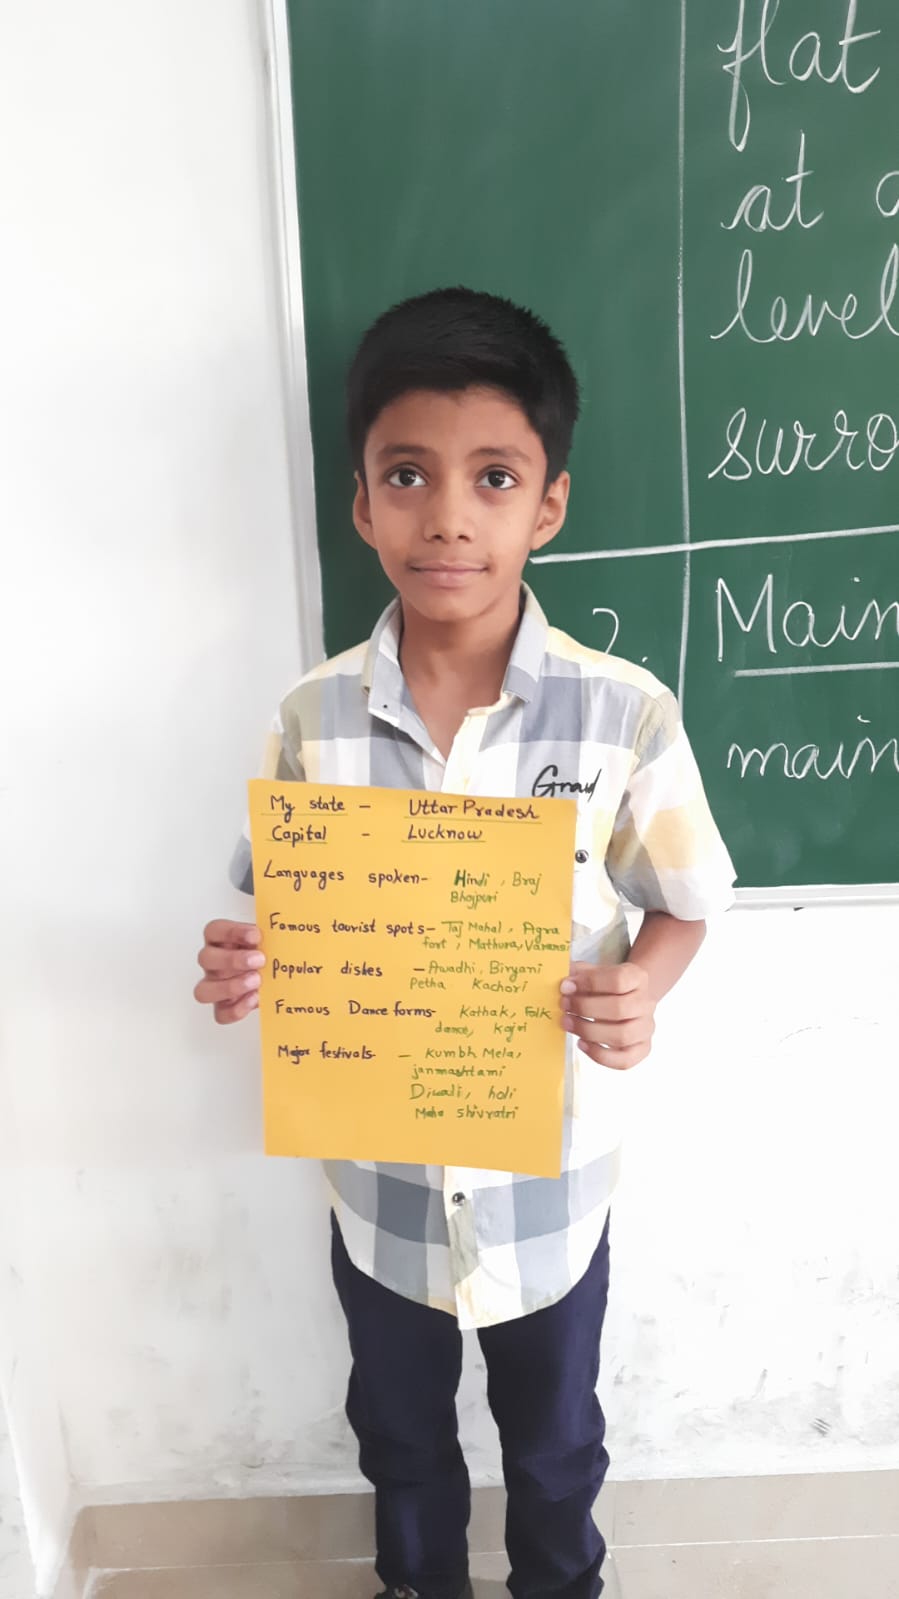 flat
at
level
surro
2. Main
main
Grand
My state - Uttar Pradesh
Capital - Lucknow
Languages spoken- Hindi, Braj
Bhojpuri
Famous tourist spots- Taj Mahal, Agra
fort, Mathura, Varansi
Popular dishes - Awadhi, Biryani
Petha Kachori
Famous Dance forms- Kathak, Folk
dance, Kajri
Major festivals - Kumbh Mela,
janmashtami
Diwali, holi
Maha shivratri